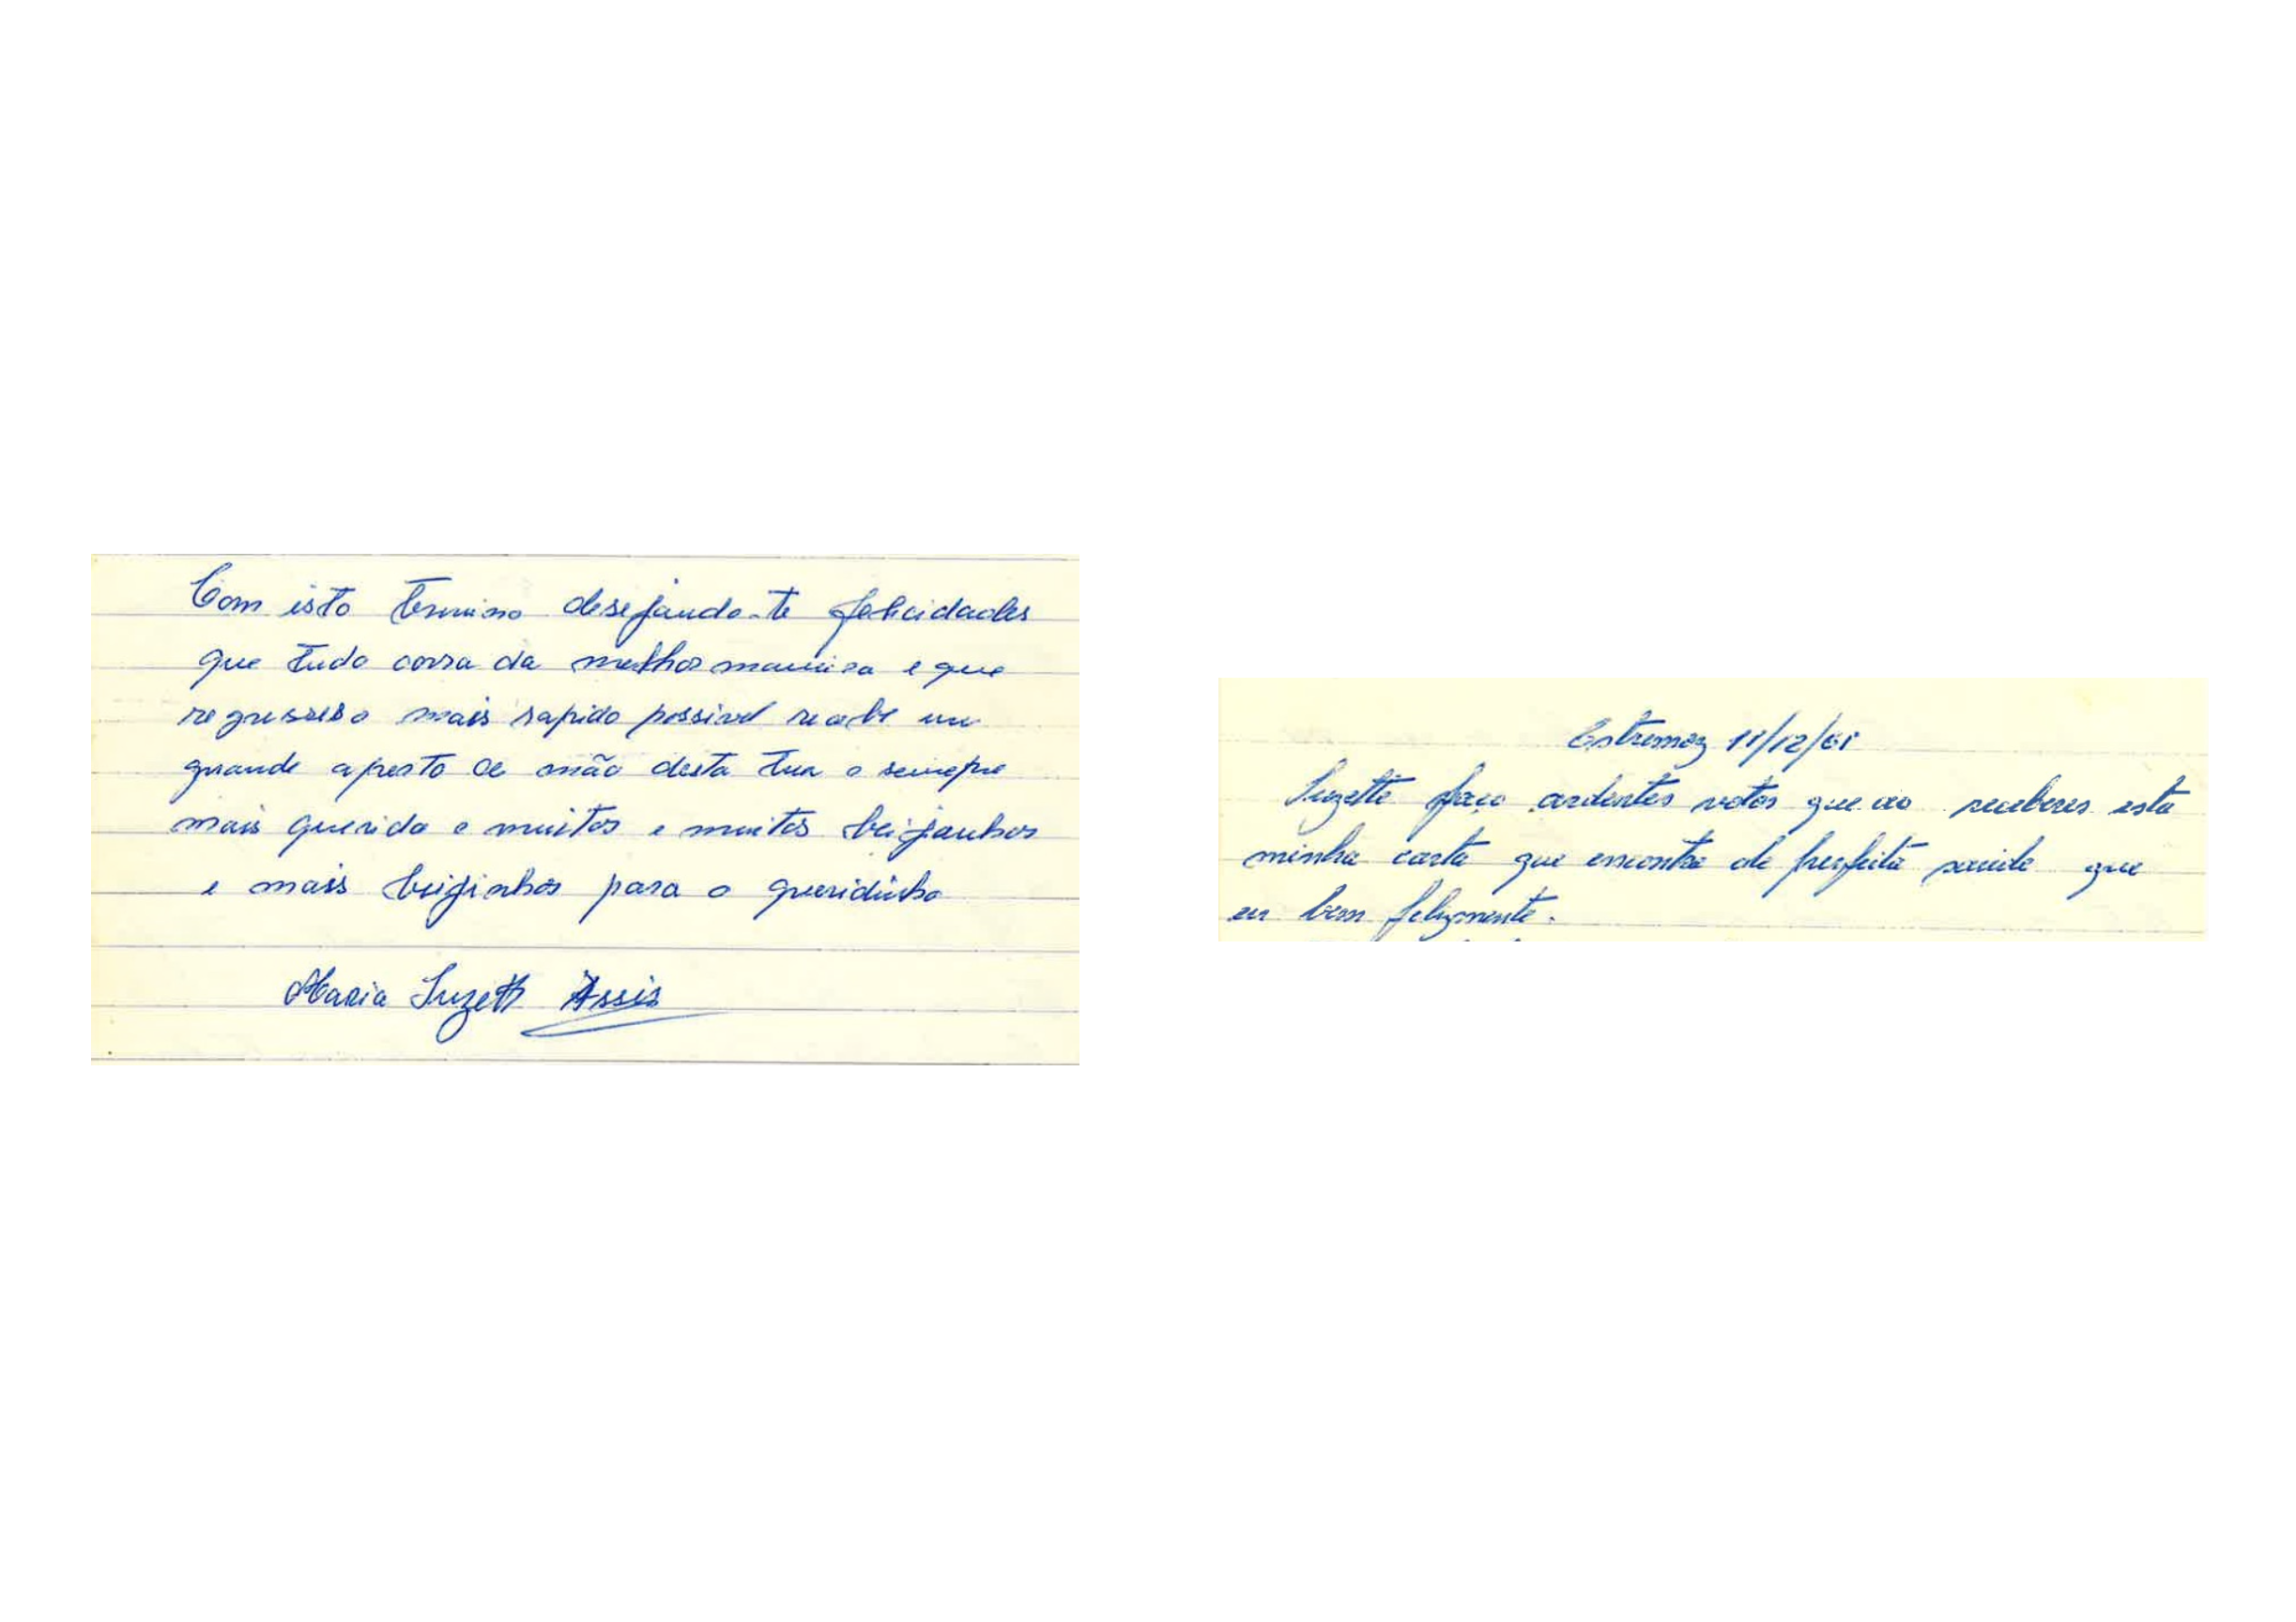 Com isto termino desejando-te felicidades
que tudo corra da melhor maneira e que
regresses o mais rapido possivel recebe um
grande aperto de mão desta tua e sempre
mais querida e muitos e muitos beijanhos
e mais beijinhos para o queridinho
Maria Suzett Assis
Estremoz 11/12/61
Suzette faço ardentes votos que ao receberes esta
minha carta que encontre de perfeita saúde que
eu bem felizmente.